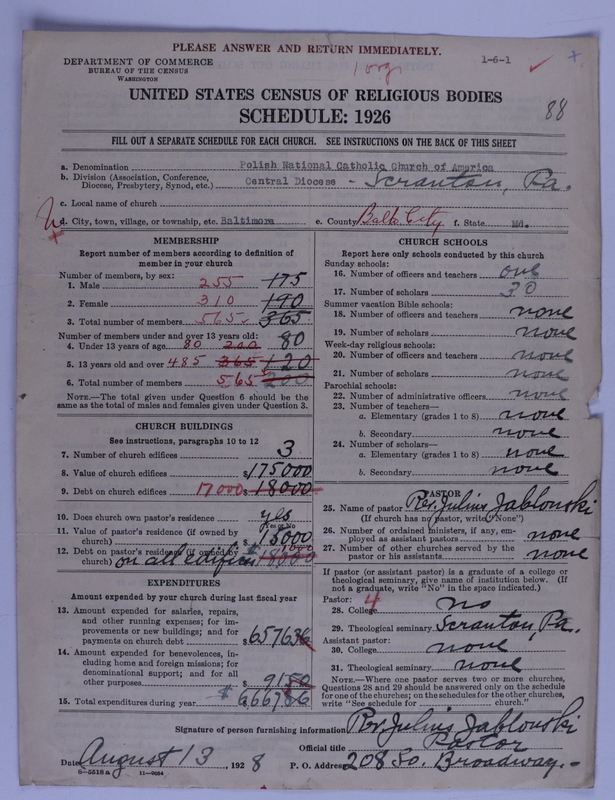 PLEASE ANSWER AND RETURN IMMEDIATELY.
DEPARTMENT OF COMMERCE
BUREAU OF THE CENSUS
WASHINGTON
1 org.
1-6-1
UNITED STATES CENSUS OF RELIGIOUS BODIES
SCHEDULE: 1926
88
FILL OUT A SEPARATE SCHEDULE FOR EACH CHURCH. SEE INSTRUCTIONS ON THE BACK OF THIS SHEET
a. Denomination Polish National Catholic Church of America
b. Division (Association, Conference, Diocese, Presbytery, Synod, etc.) Central Diocese - Scranton, Pa.
c. Local name of church
d. City, town, village, or township, etc. Baltimore e. County Balto City f. State Md.
MEMBERSHIP
Report number of members according to definition of
member in your church
Number of members, by sex:
1. Male 255 175
2. Female 310 190
3. Total number of members 565 365
Number of members under and over 13 years old:
4. Under 13 years of age 80 200 80
5. 13 years old and over 485 365 120
6. Total number of members 565 200
NOTE.—The total given under Question 6 should be the
same as the total of males and females given under Question 3.
CHURCH BUILDINGS
See instructions, paragraphs 10 to 12
7. Number of church edifices 3
8. Value of church edifices $175000
9. Debt on church edifices 17000 $18000
10. Does church own pastor's residence yes
Yes or No
11. Value of pastor's residence (if owned by
church) $15000
12. Debt on pastor's residence (if owned by
church) on all edifices
EXPENDITURES
Amount expended by your church during last fiscal year
13. Amount expended for salaries, repairs,
and other running expenses; for im-
provements or new buildings; and for
payments on church debt $657636
14. Amount expended for benevolences, in-
cluding home and foreign missions; for
denominational support; and for all
other purposes $9150
15. Total expenditures during year $
CHURCH SCHOOLS
Report here only schools conducted by this church
Sunday schools:
16. Number of officers and teachers one
17. Number of scholars 30
Summer vacation Bible schools:
18. Number of officers and teachers none
19. Number of scholars none
Week-day religious schools:
20. Number of officers and teachers none
21. Number of scholars none
Parochial schools:
22. Number of administrative officers none
23. Number of teachers—
a. Elementary (grades 1 to 8) none
b. Secondary none
24. Number of scholars—
a. Elementary (grades 1 to 8) none
b. Secondary none
PASTOR
25. Name of pastor Rev. Julius Jablonski
(If church has no pastor, write "None")
26. Number of ordained ministers, if any, em-
ployed as assistant pastors none
27. Number of other churches served by the
pastor or his assistants none
If pastor (or assistant pastor) is a graduate of a college or
theological seminary, give name of institution below. (If
not a graduate, write "No" in the space indicated.)
Pastor: 4
28. College no
29. Theological seminary Scranton, Pa.
Assistant pastor:
30. College none
31. Theological seminary none
NOTE.—Where one pastor serves two or more churches,
Questions 28 and 29 should be answered only on the schedule
for one of the churches; on the schedules for the other churches,
write "See schedule for church."
Signature of person furnishing information Rev. Julius Jablonski
Official title Pastor
Date August 13, 1928 P. O. Address 208 So. Broadway.-
8-5518a 11-9054